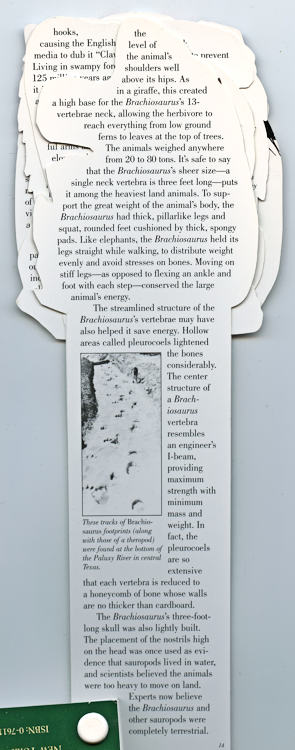 hooks,
causing the English
media to dub it "Claw
Living in swampy
125 years
it
the
level of
the animal's
prevent
shoulders well
above its hips. As
in a giraffe, this created
a high base for the Brachiosaurus's 13-
vertebrae neck, allowing the herbivore to
reach everything from low ground
ferns to leaves at the top of trees.
The animals weighed anywhere
from 20 to 80 tons. It's safe to say
that the Brachiosaurus's sheer size—a
single neck vertebra is three feet long—puts
it among the heaviest land animals. To sup-
port the great weight of the animal's body, the
Brachiosaurus had thick, pillarlike legs and
squat, rounded feet cushioned by thick, spongy
pads. Like elephants, the Brachiosaurus held its
legs straight while walking, to distribute weight
evenly and avoid stresses on bones. Moving on
stiff legs—as opposed to flexing an ankle and
foot with each step—conserved the large
animal's energy.
The streamlined structure of the
Brachiosaurus's vertebrae may have
also helped it save energy. Hollow
areas called pleurocoels lightened
the bones
considerably.
The center
structure of
a Brach-
iosaurus
vertebra
resembles
an engineer's
I-beam,
providing
maximum
strength with
minimum
mass and
weight. In
fact, the
pleurocoels
are so
extensive
These tracks of Brachio-
saurus footprints (along
with those of a theropod)
were found at the bottom of
the Paluxy River in central
Texas.
that each vertebra is reduced to
a honeycomb of bone whose walls
are no thicker than cardboard.
The Brachiosaurus's three-foot-
long skull was also lightly built.
The placement of the nostrils high
on the head was once used as evi-
dence that sauropods lived in water,
and scientists believed the animals
were too heavy to move on land.
Experts now believe
the Brachiosaurus and
other sauropods were
completely terrestrial.
14
ISBN: 0-761
NEW YORK